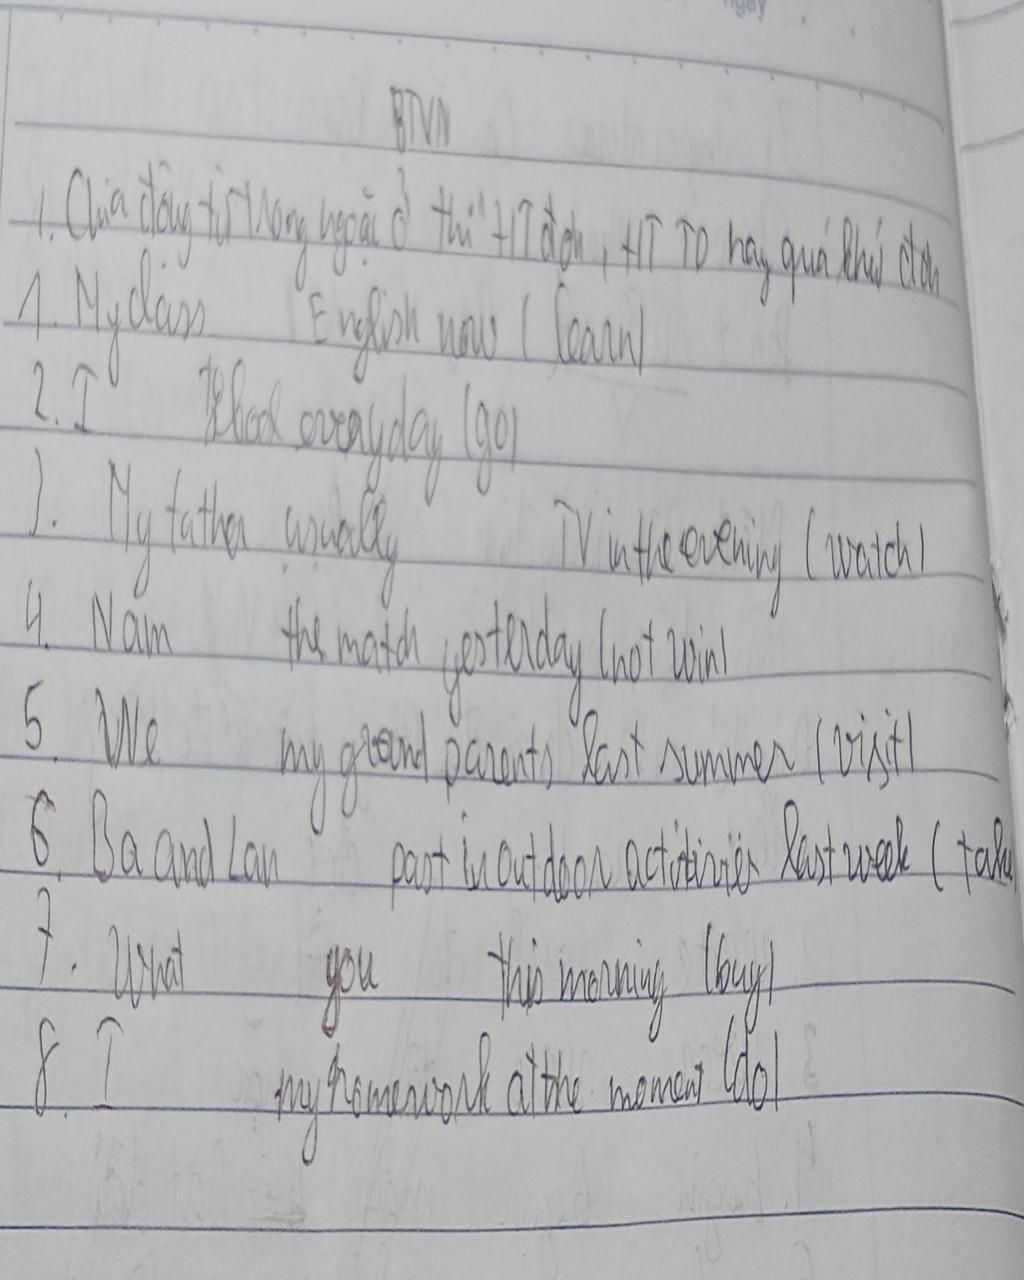 ngày
BTVN
1. Chia động từ trong ngoặc ở thì HT đơn, HT TD hay quá khứ đơn
1. My class English now (learn)
2. I school everyday (go)
3. My father usually TV in the evening (watch)
4. Nam the match yesterday (not win)
5. We my grand parents last summer (visit)
6. Ba and Lan part in outdoor last week (take
7. What you this morning (buy)
8. I my homework at the moment (do)